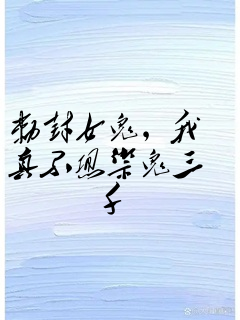 勒封女鬼，我
真不思御鬼三
千